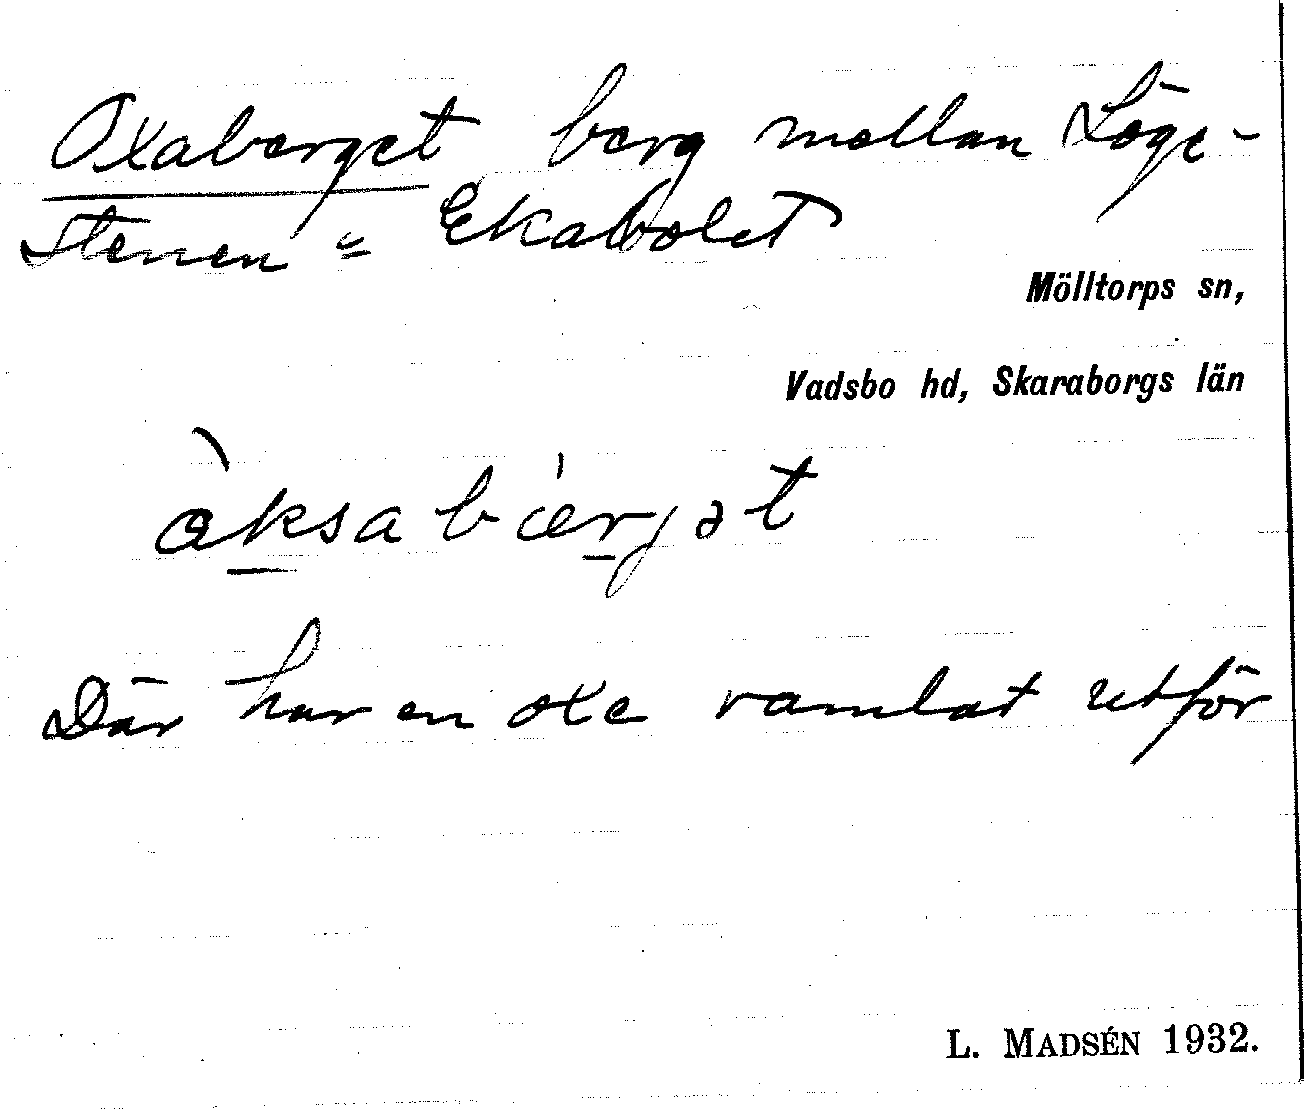 Oxaberget berg mellan Löge-
stenen o Ekabolet
Mölltorps sn,
Vadsbo hd, Skaraborgs län
òksab'ærjət
Där har en oxe ramlat utför
L. MADSÉN 1932.